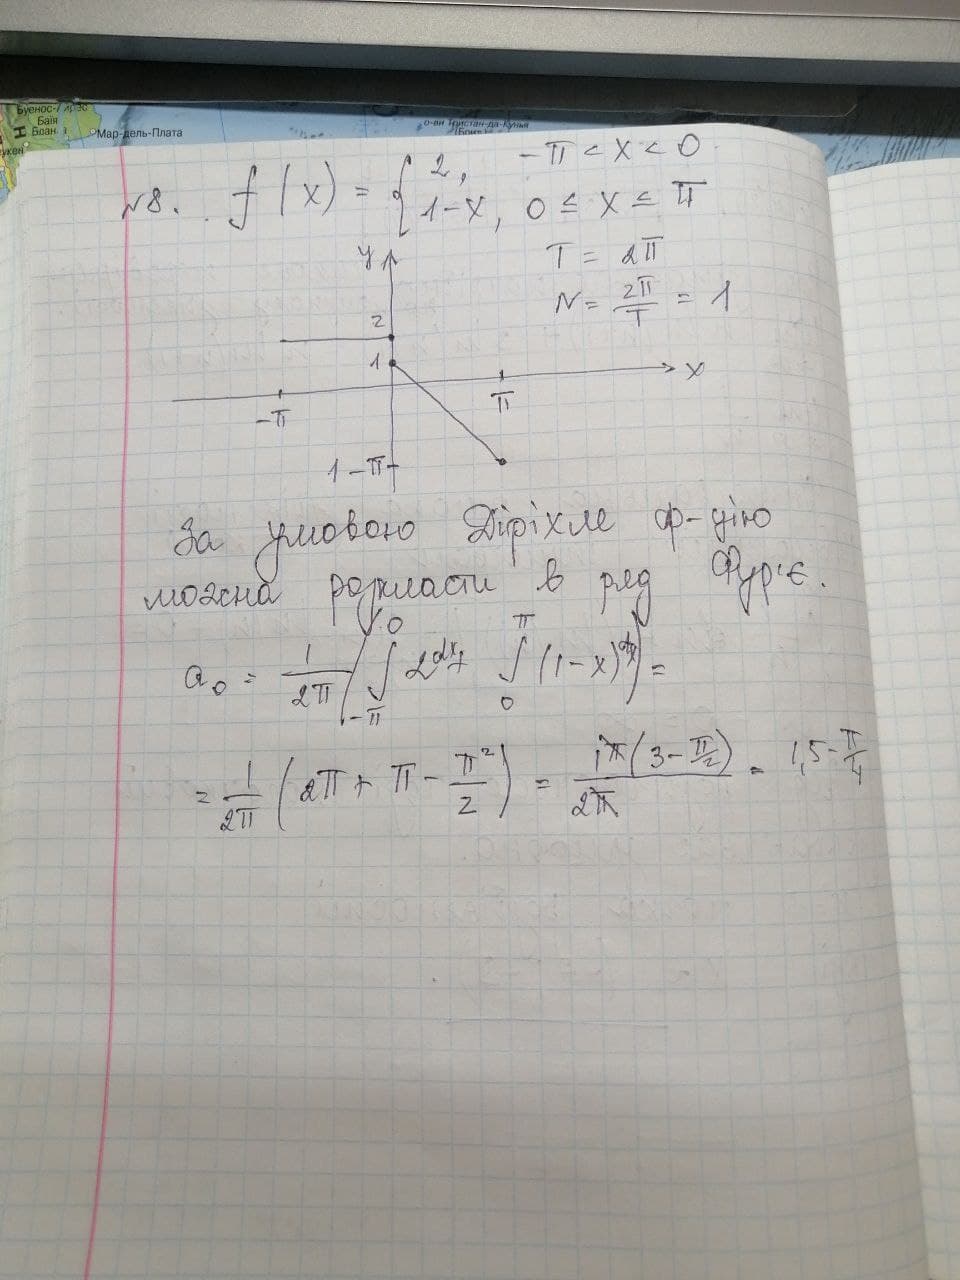 Буенос-Айрес
Баїя
Бланка
Мар-дель-Плата
о-ви Тристан-да-Кунья
(Брит.)
N8. f(x) = { 2, -π < x < 0
1-x, 0 ≤ x ≤ π
T = 2π
N = 2π/T = 1
y
2
1
x
-π
π
1-π
За умовою Діріхле ф-цію
можна розкласти в ряд Фур'є.
a₀ = 1/2π (∫_{-π}^{0} 2dx + ∫_{0}^{π} (1-x)dx) =
= 1/2π (2π + π - π²/2) = 1π(3 - π/2)/2π = 1,5 - π/4